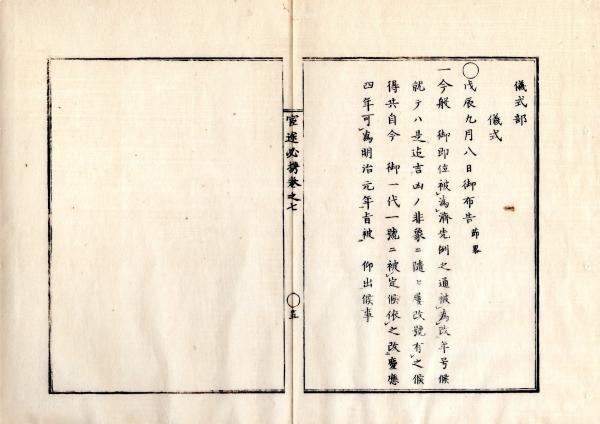 儀式部
儀式
〇戊辰九月八日御布告 節畧
一今般 御即位被為済先例之通被為改年号候
就テハ是迠吉凶ノ兆象ニ隨ヒ屢改號有之候
得共自今 御一代一號ニ被定候依之改慶應
四年可為明治元年旨被 仰出候事
官途必携巻之七
〇五